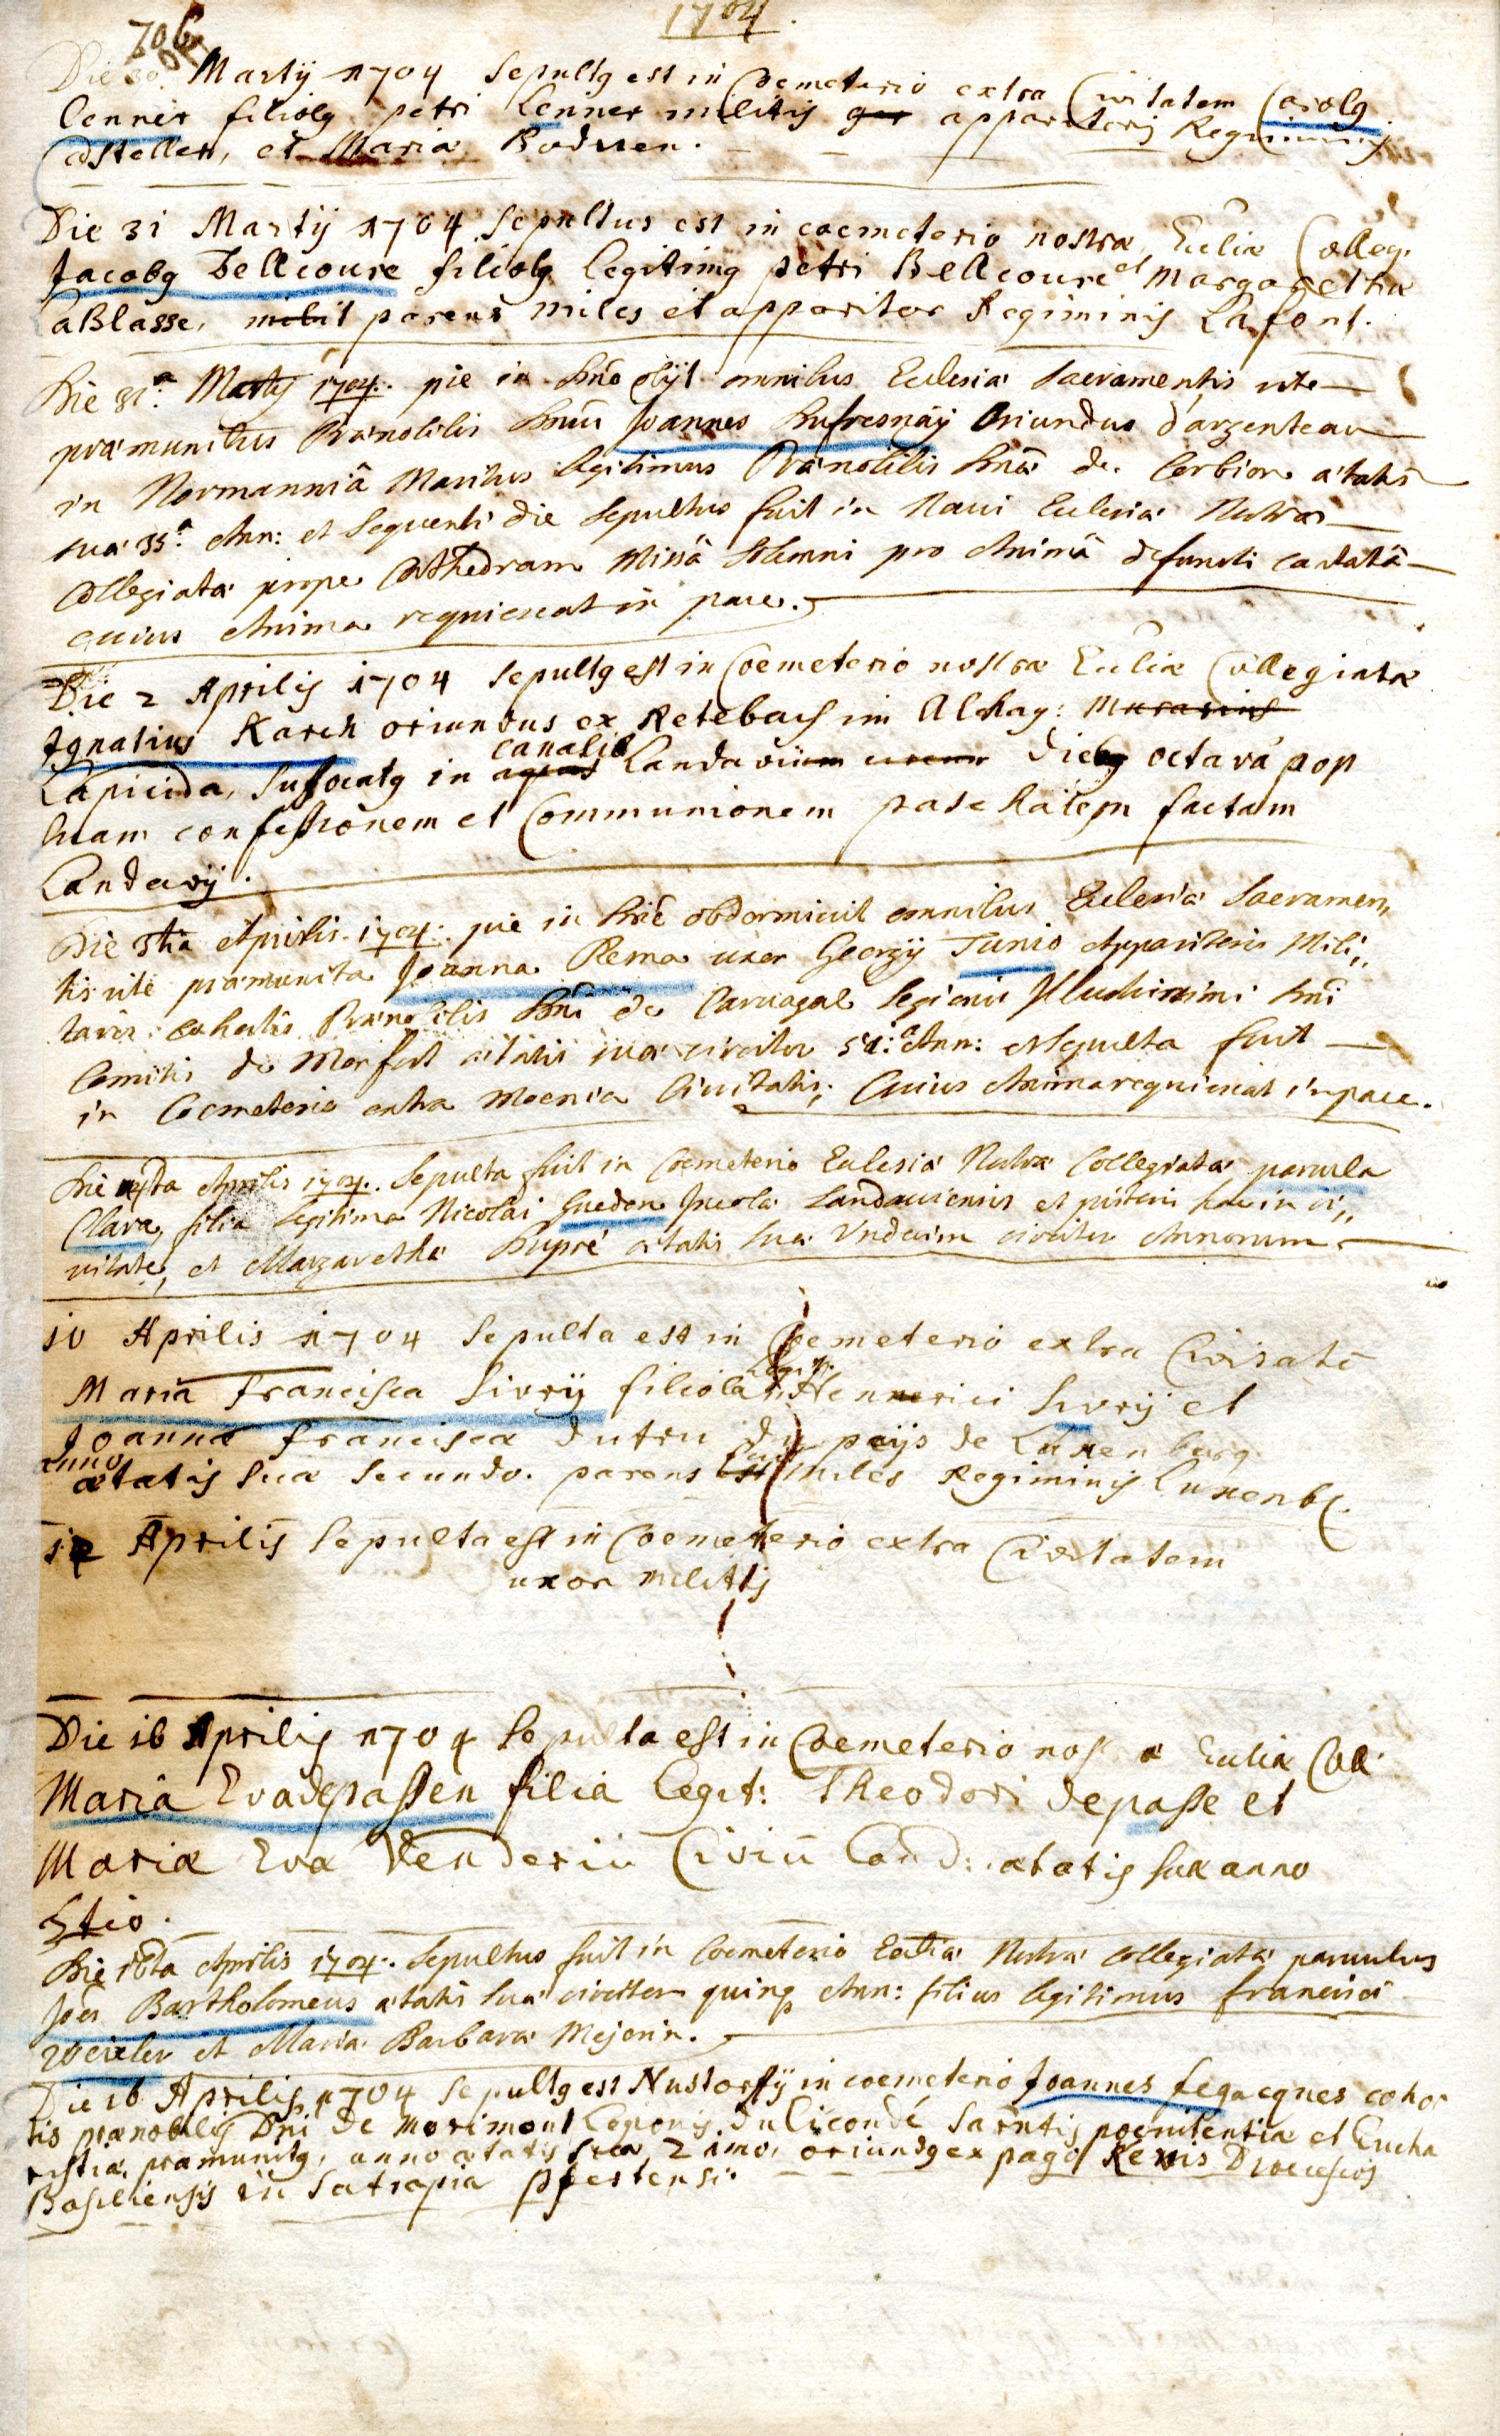 1704.
706
Die 30 Martij 1704 Sepultg est in Coemeterio extra Civitatem Carolg
Cenner filiolg petri Cenner militis apparitorij Regiminis
Castellen, et Maria Bodwen.
Die 31 Martij 1704 Sepultus est in coemeterio nostræ Eccliæ Colleg.
Jacobg Bellcoure filiolg legitimg petri Bellcoure et Margarethæ
Lablasse, parens miles et apparitor Regiminis Lafont.
Die 31.a Martij 1704. pie in Dno obijt omnibus Ecclesiæ Sacramentis rite
præmunitus Prænobilis Dnus Joannes Dufresnay Oriundus d'argenteau
in Normanniâ Maritus legitimus Prænobilis Dnæ de Corbion ætatis
suæ 35.a Ann: et Sequenti die Sepultus fuit in Navi Ecclesiæ Nostræ
Collegiatæ prope Cathedram Missâ Solemni pro Animâ defuncti cantatâ
cuius Anima requiescat in pace.
Die 2 Aprilis 1704 Sepultg est in Coemeterio nostræ Eccliæ Collegiatæ
Ignatius Karch oriundus ex Retebach im Alchay:
Lapicida, Suffocatg in canalib Landavii die octavâ pop
suam confessionem et Communionem paschalem factam
Landavij.
Die 3tia Aprilis 1704. pie in Dno obdormivit omnibus Ecclesiæ Sacramen„
tis rite præmunita Joanna Rema uxor Georgij Tunio Apparitoris Mili„
taris cohortis Prænobilis Dni de Carvagal legionis Illustrissimi Dni
Comitis de Monfort ætatis suæ circiter 51.a Ann: et Sepulta fuit
in Coemeterio extra Moenia Civitatis; Cuius Anima requiescat in pace.
Die Aprilis 1704. Sepulta fuit in Coemeterio Ecclesiæ Nostræ Collegiatæ parvula
Clara, filia legitima Nicolai Guedon Incolæ Landaviensis et pistoris hac in ci„
vitate, et Margarethæ Dupré ætatis suæ Undecim circiter Annorum.
10 Aprilis 1704 Sepulta est in Coemeterio extra Civitatē
Maria francisca Sivrij filiola Legit. Hennerici Sivrij et
Joannæ franciscæ dutru du paijs de Luxenburg
anno
ætatis suæ secundo. parens miles Regiminis Luxenb.
12 Aprilis Sepulta est in Coemeterio extra Civitatem
uxor militis
Die 16 Aprilis 1704 Sepulta est in Coemeterio nostræ Eccliæ Coll.
Maria Eva depassen filia legit: Theodori depasse et
Mariæ Eva Venderiū Civiū Land: ætatis suæ anno
3tio.
Die 16ta Aprilis 1704. Sepultus fuit in Coemeterio Ecctiæ Nostræ Collegiatæ parvulus
Joēs Bartholomeus ætatis suæ circiter quinq Ann: filius legitimus francisci
Weixler et Mariæ Barbaræ Mejerin.
Die 16 Aprilis 1704 Sepultg est Nustorfij in coemeterio Joannes fega eques cohor
tis prænobilis Dni de Morimont Legionis du Cicondé Sacrntis poenitentiæ et Eucha
ristiæ præmunitg, anno ætatis suæ 2 imo, oriundg ex pago Renis Dioecesios
Basiliensis in Satrapia pfertensi.